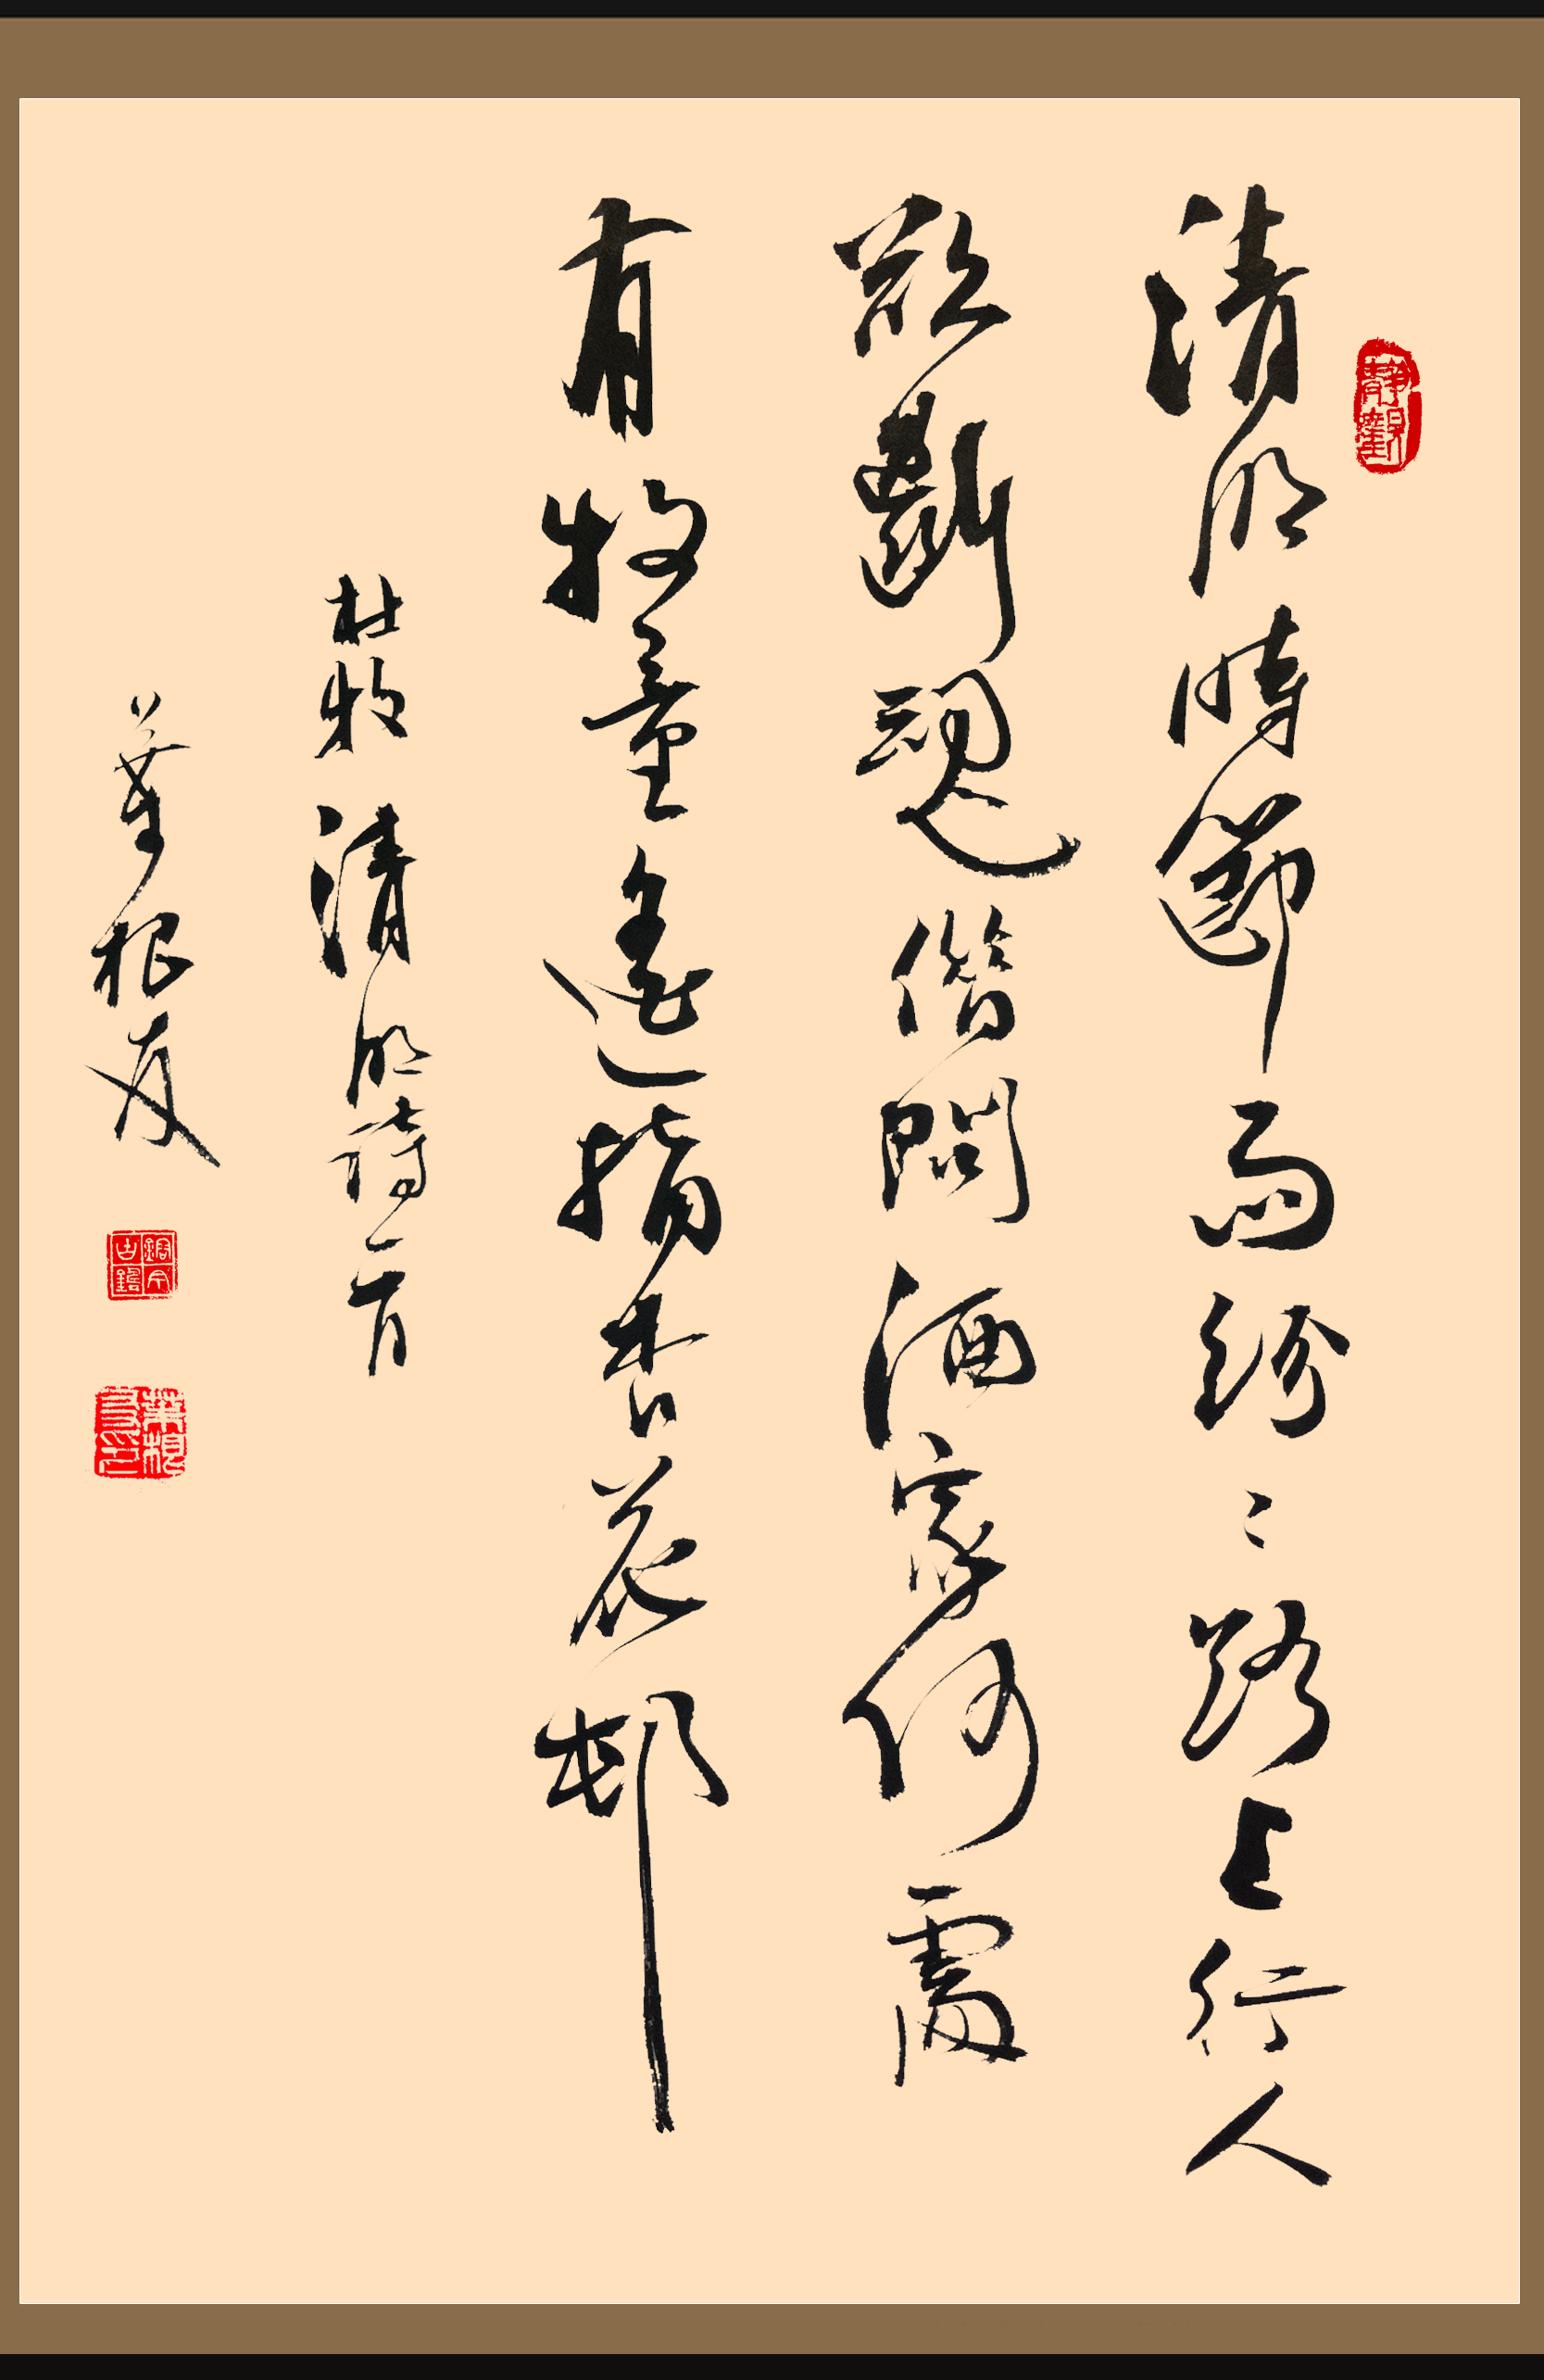 靜觀
清明時節雨紛〻路上行人
欲斷魂借問酒家何處
有牧童遙指杏花邨
杜牧 清明詩一首
葉根友
葉根友印